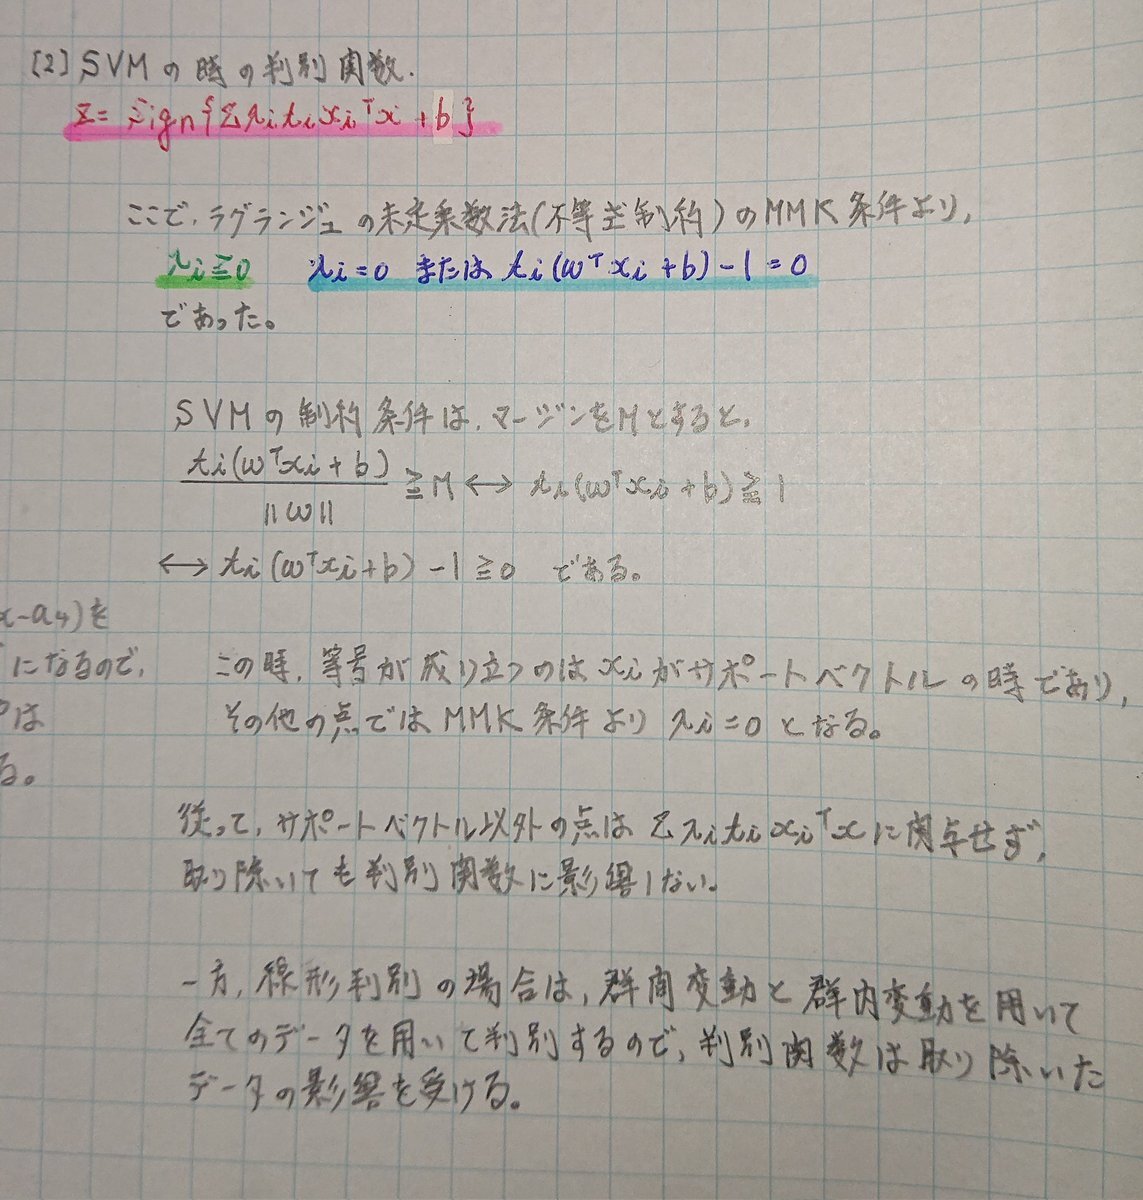 [2] SVMの時の判別関数.
z = sign{Σλi ti xi^T x + b}
ここで,ラグランジュの未定乗数法(不等式制約)のMMK条件より,
λi≧0 λi=0 または ti(ω^T xi + b) - 1 = 0
であった。
SVMの制約条件は,マージンをMとすると,
ti(ω^T xi + b) / ||ω|| ≧ M ↔ ti(ω^T xi + b) ≧ 1
↔ ti(ω^T xi + b) - 1 ≧ 0 である。
x-a4)を
になるので,
は
る。
この時,等号が成り立つのはxiがサポートベクトルの時であり,
その他の点ではMMK条件より λi=0 となる。
従って,サポートベクトル以外の点は Σλi ti xi^T x に関与せず,
取り除いても判別関数に影響しない。
一方,線形判別の場合は,群間変動と群内変動を用いて
全てのデータを用いて判別するので,判別関数は取り除いた
データの影響を受ける。